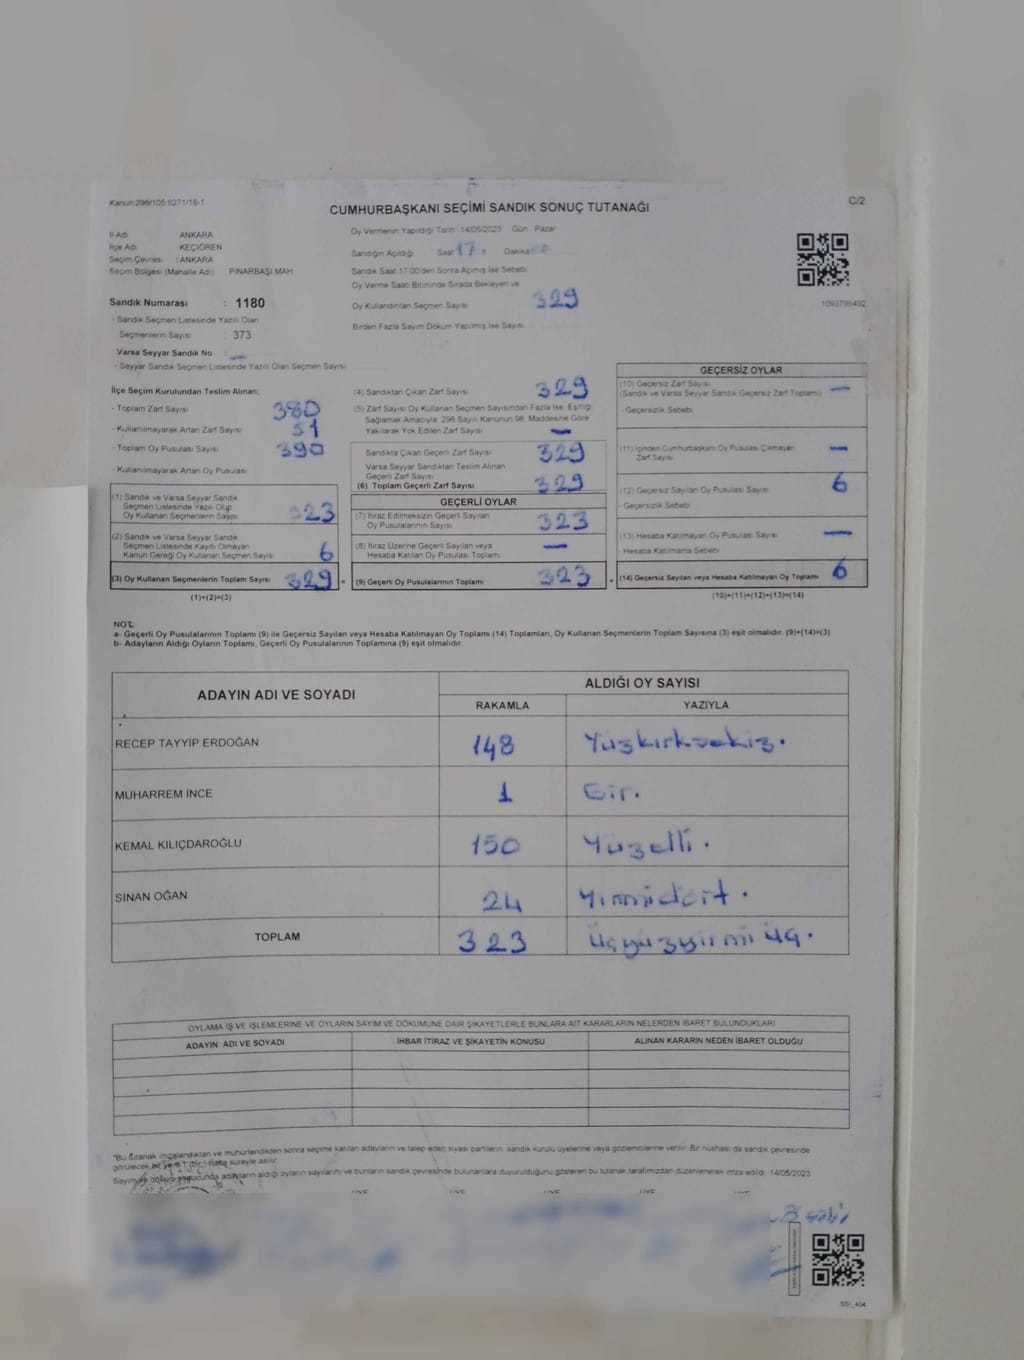 Kanun:298/105.6271/18-1
C/2
CUMHURBAŞKANI SEÇİMİ SANDIK SONUÇ TUTANAĞI
İl Adı ANKARA
İlçe Adı KEÇİÖREN
Seçim Çevresi : ANKARA
Seçim Bölgesi (Mahalle Adı) PINARBAŞI MAH
Sandık Numarası : 1180
- Sandık Seçmen Listesinde Yazılı Olan
Seçmenlerin Sayısı : 373
Varsa Seyyar Sandık No :
- Seyyar Sandık Seçmen Listesinde Yazılı Olan Seçmen Sayısı
Oy Vermenin Yapıldığı Tarih 14/05/2023 Gün Pazar
Sandığın Açıldığı Saat 17 Dakika
Sandık Saat 17:00'den Sonra Açılmış İse Sebebi
Oy Verme Saati Bitiminde Sırada Bekleyen ve
Oy Kullandırılan Seçmen Sayısı 329
Birden Fazla Sayım Döküm Yapılmış İse Sayısı
1093795492
İlçe Seçim Kurulundan Teslim Alınan:
- Toplam Zarf Sayısı 380
- Kullanılmayarak Artan Zarf Sayısı 51
- Toplam Oy Pusulası Sayısı 390
- Kullanılmayarak Artan Oy Pusulası
(1) Sandık ve Varsa Seyyar Sandık
Seçmen Listesinde Yazılı Olup
Oy Kullanan Seçmenlerin Sayısı 323
(2) Sandık ve Varsa Seyyar Sandık
Seçmen Listesinde Kayıtlı Olmayan
Kanun Gereği Oy Kullanan Seçmen Sayısı 6
(3) Oy Kullanan Seçmenlerin Toplam Sayısı 329 =
(1)+(2)=(3)
(4) Sandıktan Çıkan Zarf Sayısı 329
(5) Zarf Sayısı Oy Kullanan Seçmen Sayısından Fazla İse, Eşitliği
Sağlamak Amacıyla, 298 Sayılı Kanunun 98. Maddesine Göre
Yakılarak Yok Edilen Zarf Sayısı —
Sandıkta Çıkan Geçerli Zarf Sayısı 329
Varsa Seyyar Sandıktan Teslim Alınan
Geçerli Zarf Sayısı
(6) Toplam Geçerli Zarf Sayısı 329
GEÇERLİ OYLAR
(7) İtiraz Edilmeksizin Geçerli Sayılan
Oy Pusulalarının Sayısı 323
(8) İtiraz Üzerine Geçerli Sayılan veya
Hesaba Katılan Oy Pusulası Toplamı —
(9) Geçerli Oy Pusulalarının Toplamı 323 +
GEÇERSİZ OYLAR
(10) Geçersiz Zarf Sayısı —
(Sandık ve Varsa Seyyar Sandık Geçersiz Zarf Toplamı)
- Geçersizlik Sebebi
(11) İçinden Cumhurbaşkanı Oy Pusulası Çıkmayan —
Zarf Sayısı
(12) Geçersiz Sayılan Oy Pusulası Sayısı 6
- Geçersizlik Sebebi
(13) Hesaba Katılmayan Oy Pusulası Sayısı —
- Hesaba Katılmama Sebebi
(14) Geçersiz Sayılan veya Hesaba Katılmayan Oy Toplamı 6
(10)+(11)+(12)+(13)=(14)
NOT:
a- Geçerli Oy Pusulalarının Toplamı (9) ile Geçersiz Sayılan veya Hesaba Katılmayan Oy Toplamı (14) Toplamları, Oy Kullanan Seçmenlerin Toplam Sayısına (3) eşit olmalıdır. (9)+(14)=(3)
b- Adayların Aldığı Oyların Toplamı, Geçerli Oy Pusulalarının Toplamına (9) eşit olmalıdır.
ADAYIN ADI VE SOYADI
ALDIĞI OY SAYISI
RAKAMLA YAZIYLA
RECEP TAYYİP ERDOĞAN 148 Yüzkırksekiz.
MUHARREM İNCE 1 Bir.
KEMAL KILIÇDAROĞLU 150 Yüzelli.
SİNAN OĞAN 24 Yirmidört.
TOPLAM 323 Üçyüzyirmi üç.
OYLAMA İŞ VE İŞLEMLERİNE VE OYLARIN SAYIM VE DÖKÜMÜNE DAİR ŞİKAYETLERLE BUNLARA AİT KARARLARIN NELERDEN İBARET BULUNDUKLARI
ADAYIN ADI VE SOYADI İHBAR İTİRAZ VE ŞİKAYETİN KONUSU ALINAN KARARIN NEDEN İBARET OLDUĞU
"Bu tutanak imzalandıktan ve mühürlendikten sonra seçime katılan adayların ve talep eden siyasi partilerin sandık kurulu üyelerine veya gözlemcilerine verilir. Bir nüshası da sandık çevresinde
görülecek bir yere 1 (bir) hafta süreyle asılır.
Sayım ve döküm sonucunda adayların aldığı oyların sayılarını ve bunların sandık çevresinde bulunanlara duyurulduğunu gösteren bu tutanak tarafımızdan düzenlenerek imza edildi. 14/05/2023
ÜYE ÜYE ÜYE ÜYE ÜYE